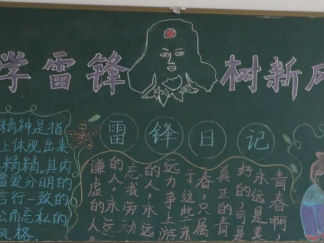 学雷锋
树新风
雷锋日记
精神是指
上体现出来
精精,其内
爱分明的
言行一致的
而忘私的
风格
青春啊
永远是美
好的可是
真正的青
春,只属
于这些永
远力争上游
的人,永远
忘我劳动
的人,永远
谦虚的人